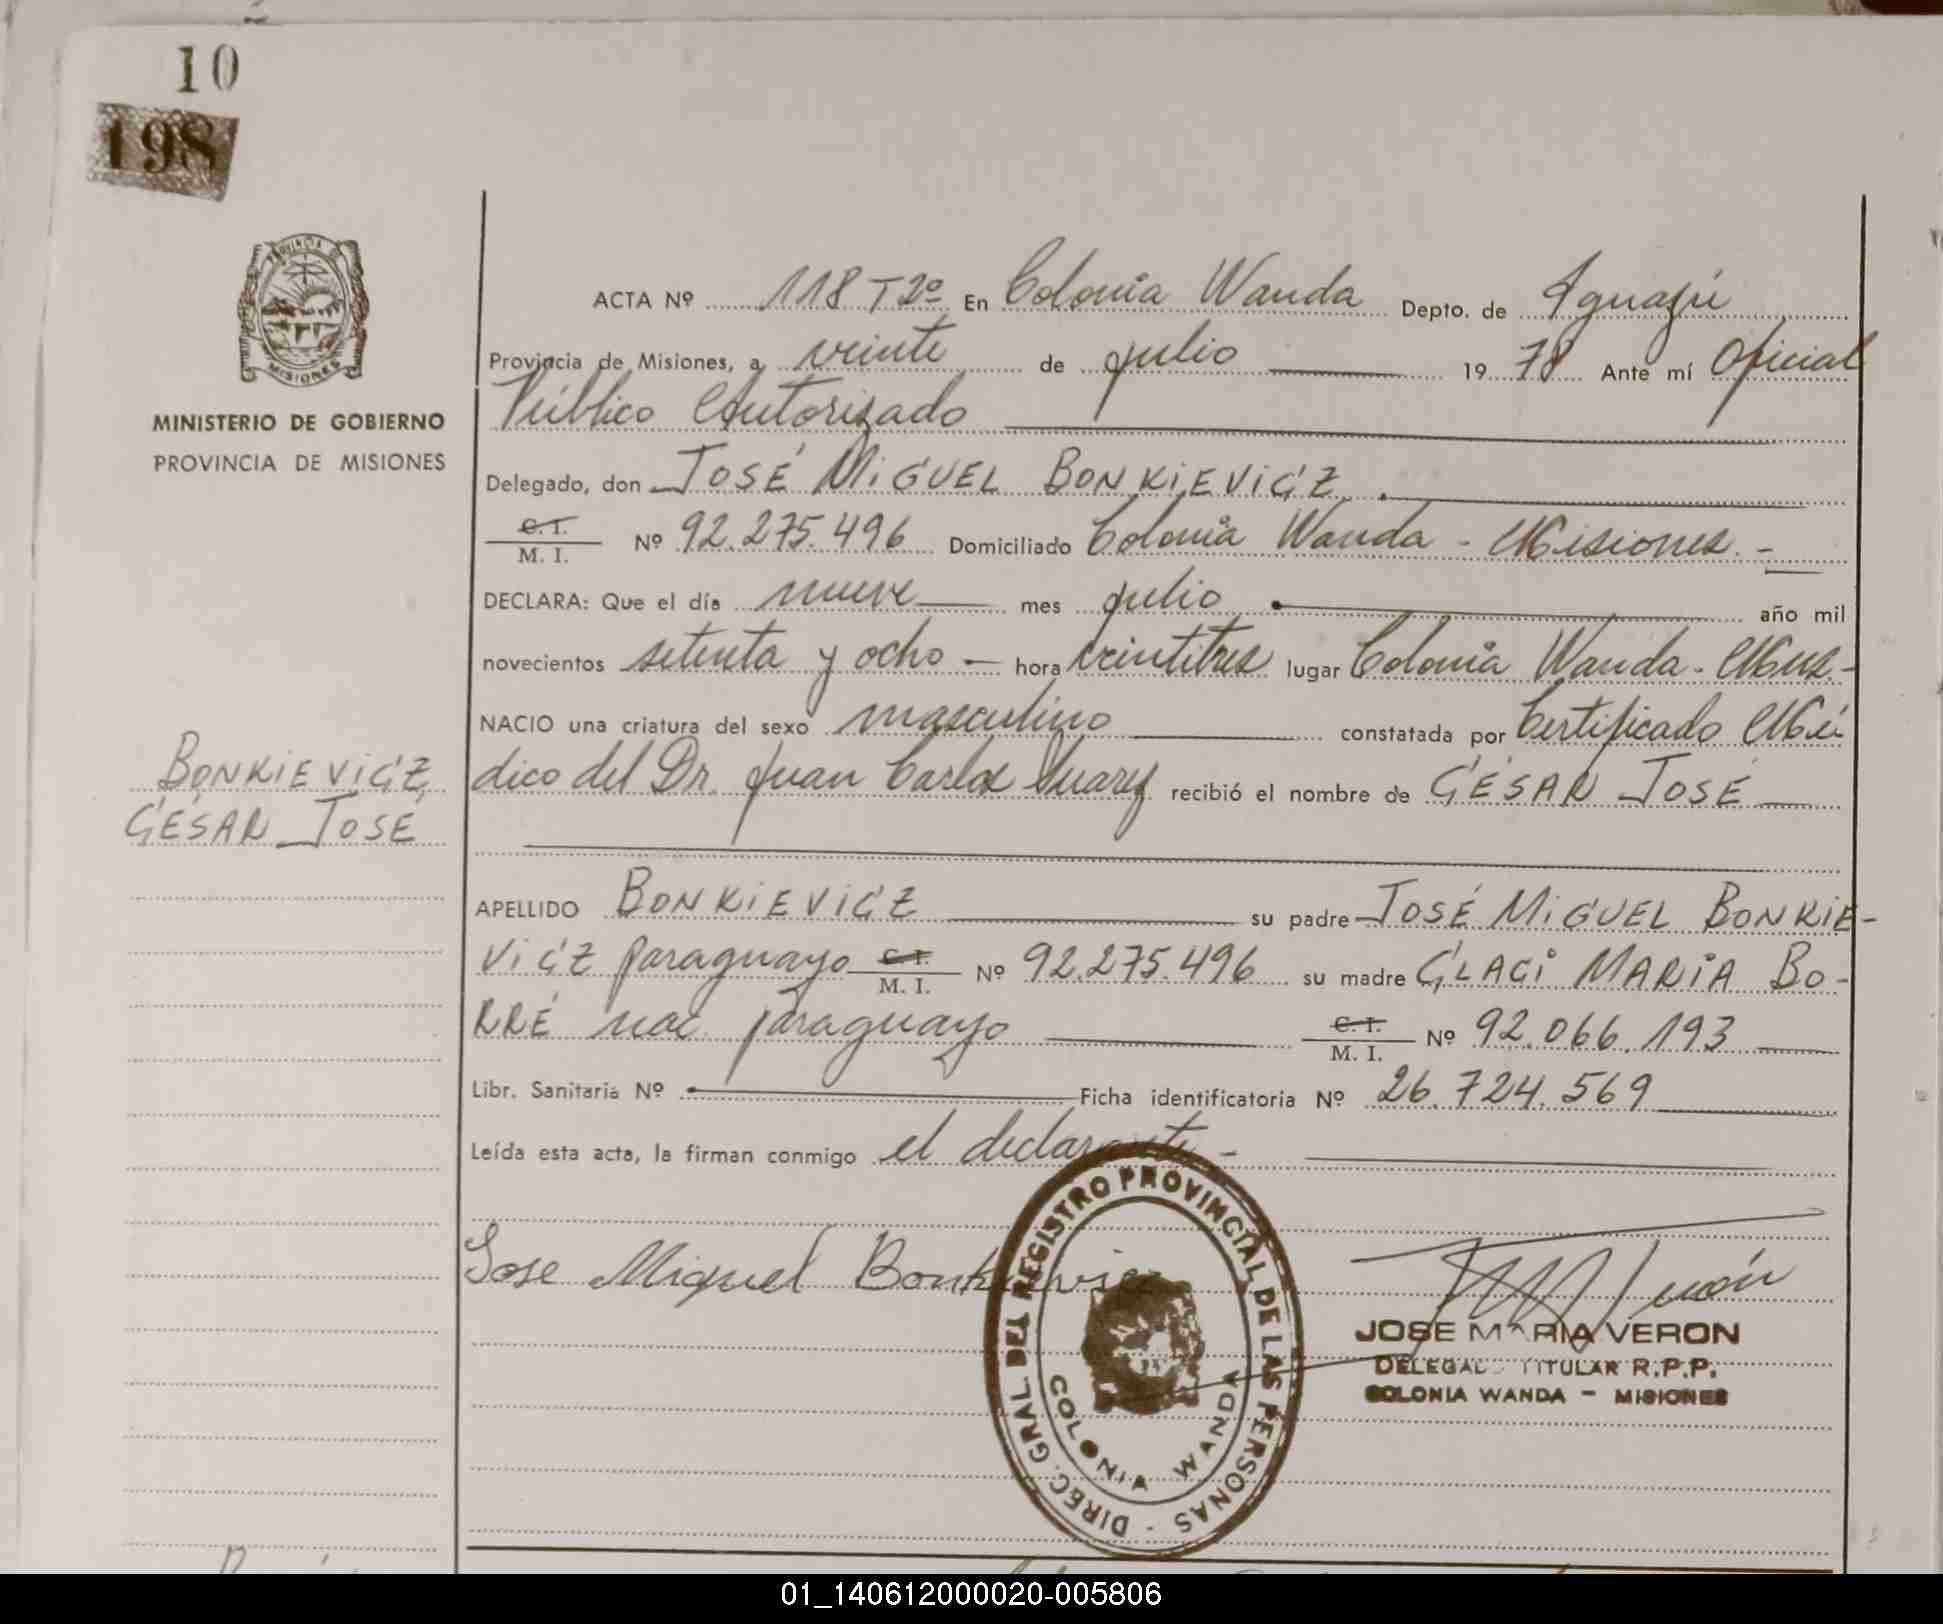 10
198
PROVINCIA DE
MISIONES
MINISTERIO DE GOBIERNO
PROVINCIA DE MISIONES
BONKIEVICZ
CÉSAR JOSÉ
ACTA Nº 118 T 2º En Colonia Wanda Depto. de Iguazú
Provincia de Misiones, a veinte de julio 1978 Ante mí Oficial
Público Autorizado
Delegado, don JOSÉ MIGUEL BONKIEVICZ.
C.I.
M. I. Nº 92.275.496 Domiciliado Colonia Wanda - Misiones. -
DECLARA: Que el día nueve mes julio año mil
novecientos setenta y ocho - hora veintitres lugar Colonia Wanda - Mnes.-
NACIO una criatura del sexo masculino constatada por Certificado Mé
dico del Dr. Juan Carlos Suarez recibió el nombre de CÉSAR JOSÉ
APELLIDO BONKIEVICZ su padre JOSÉ MIGUEL BONKIE-
VICZ paraguayo C.I. M. I. Nº 92.275.496 su madre GLACI MARIA BO-
RRÉ nac. paraguayo C.I. M. I. Nº 92.066.193
Libr. Sanitaria Nº Ficha identificatoria Nº 26.724.569
Leída esta acta, la firman conmigo el declarante -
Jose Miguel Bonkievicz
DIREC. GRAL. DEL REGISTRO PROVINCIAL DE LAS PERSONAS -
COLONIA WANDA
JOSE MARIA VERON
DELEGADO TITULAR R.P.P.
COLONIA WANDA - MISIONES
01_140612000020-005806